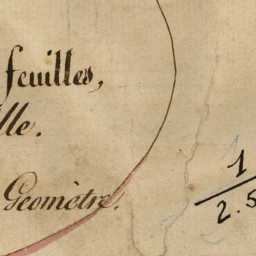 feuilles,
lle.
Géomètre.
1
2.5